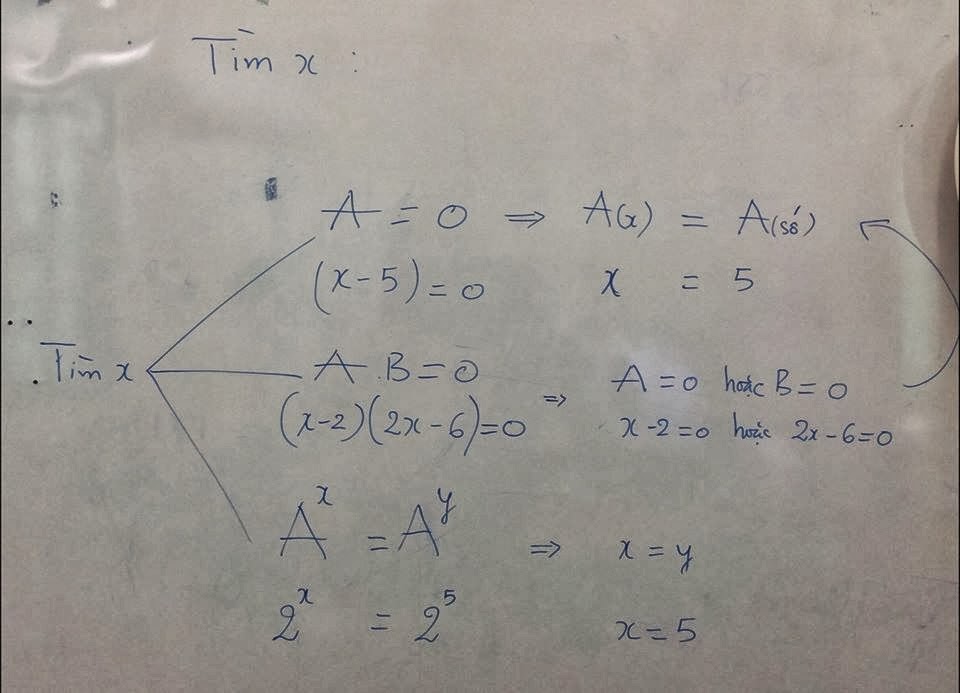 Tìm x :
A = 0 ⇒ A(x) = A(số)
(x-5) = 0 x = 5
Tìm x
A.B = 0 ⇒ A = 0 hoặc B = 0
(x-2)(2x-6)=0 x-2=0 hoặc 2x-6=0
Aˣ = Aʸ ⇒ x = y
2ˣ = 2⁵ x = 5